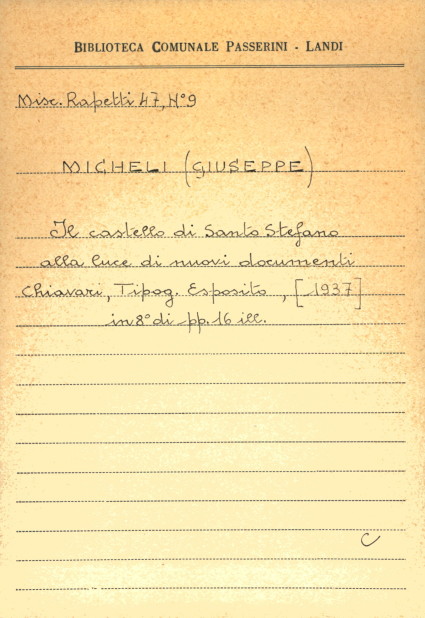 BIBLIOTECA COMUNALE PASSERINI - LANDI
Misc. Rapetti 47, N° 9
MICHELI (GIUSEPPE)
Il castello di Santo Stefano
alla luce di nuovi documenti
Chiavari, Tipog. Esposito, [1937]
in 8° di pp. 16 ill.
C